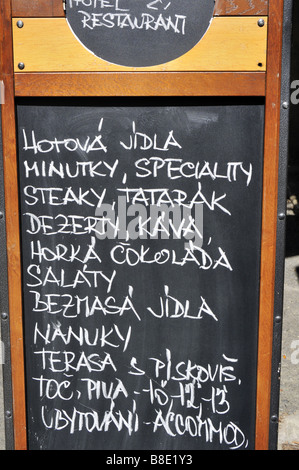 HOTEL Z
RESTAURANT
HOTOVÁ JÍDLA
MINUTKY, SPECIALITY
STEAKY, TATARÁK
DEZERTY, KÁVA
HORKÁ ČOKOLÁDA,
SALÁTY
BEZMASÁ JÍDLA
NANUKY
TERASA S PÍSKOVIŠ.
TOČ. PIVA -10°-12°-13
UBYTOVÁNÍ - ACCOMMOD.